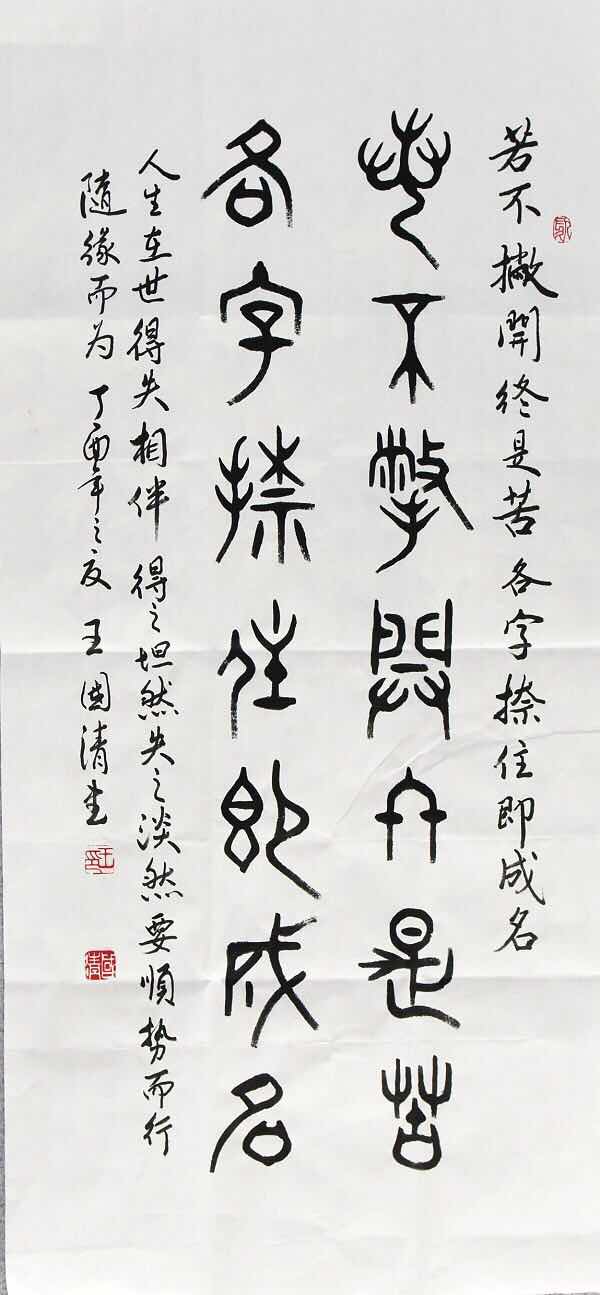 若不撇開終是苦各字捺住即成名
若不撆開夂是苦
各字捺住即成名
人生在世得失相伴得之坦然失之淡然要順势而行
隨缘而为丁酉年之夜王国清书
王印
国清